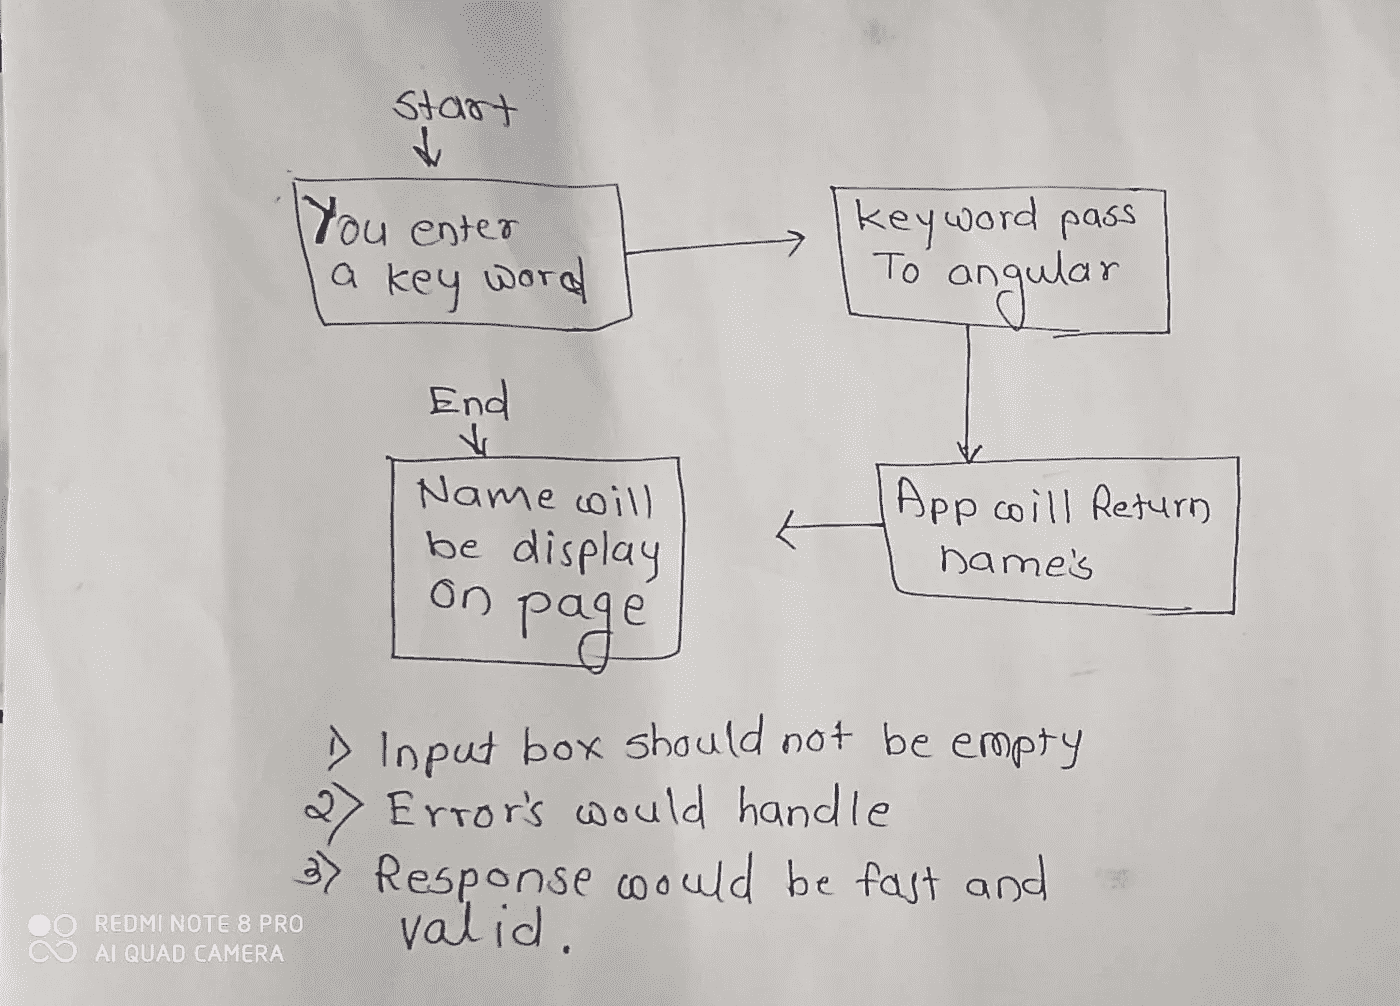 Start
You enter
a key word
keyword pass
To angular
End
Name will
be display
on page
App will Return
name's
1) Input box should not be empty
2) Error's would handle
3) Response would be fast and
valid.
REDMI NOTE 8 PRO
AI QUAD CAMERA